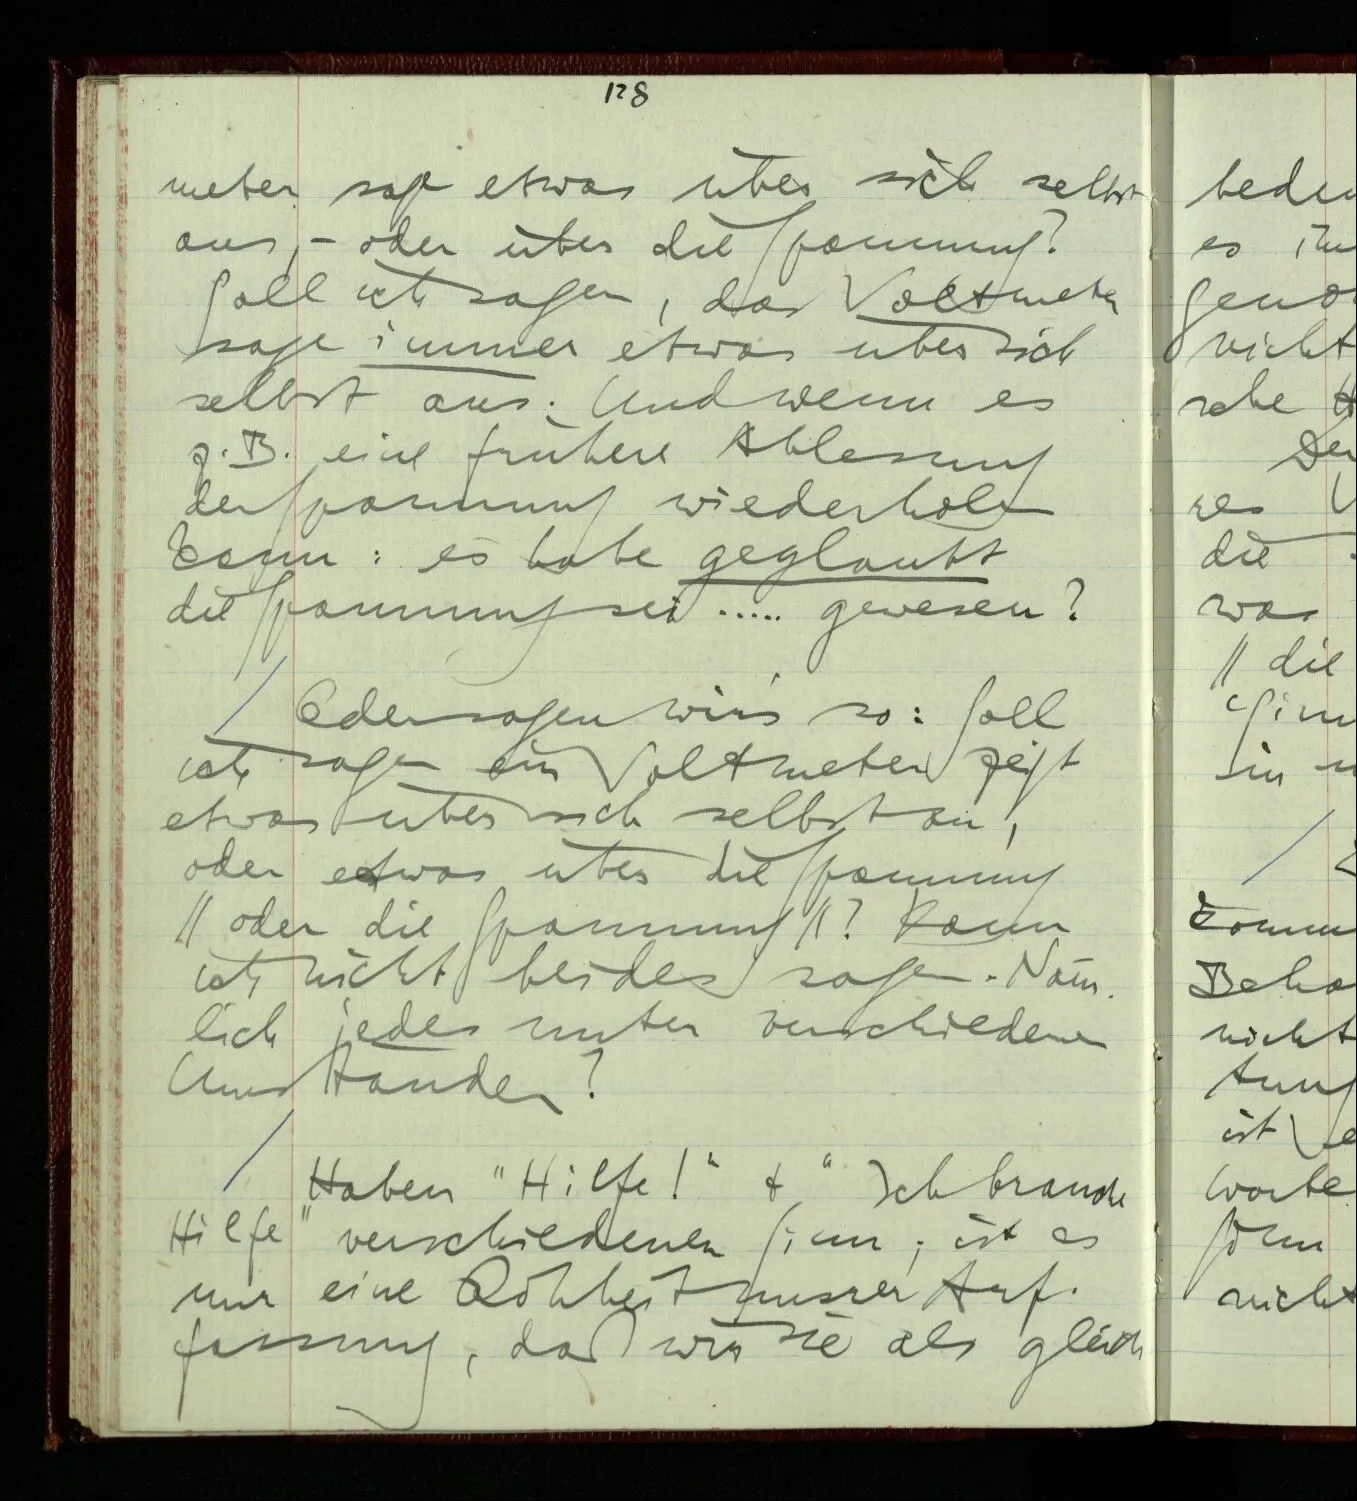 128
meter sage etwas über sich selbst
aus, – oder über die Spannung?
Soll ich sagen, das Voltmeter
sage immer etwas über sich
selbst aus. Und wenn es
z.B. eine frühere Ablesung
der Spannung wiederholen
kann: es habe geglaubt
die Spannung sei ..... gewesen?
Oder sagen wir's so: Soll
ich sagen ein Voltmeter zeigt
etwas über sich selbst an,
oder etwas über die Spannung
// oder die Spannung //? Kann
ich nicht beides sagen. Näm-
lich jedes unter verschiedenen
Umständen?
Haben "Hilfe!" & "Ich brauche
Hilfe" verschiedenen Sinn; ist es
nur eine Rohheit unserer Auf-
fassung, daß wir sie als gleich
bedeu
es im
nicht
sche
die
was
// die
Sinn
komm
nicht
ist
Worte
nicht